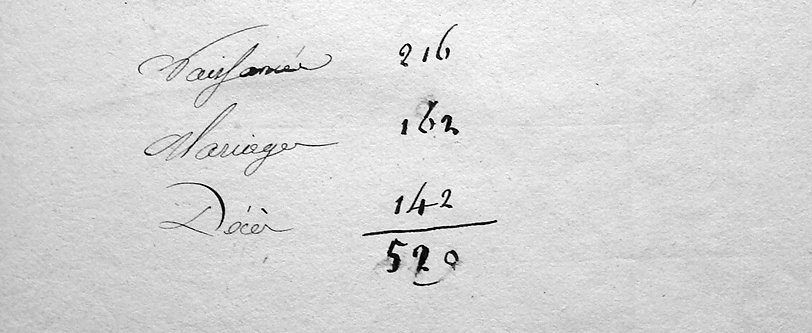 Naissances 216
Mariages 162
Décès 142
520